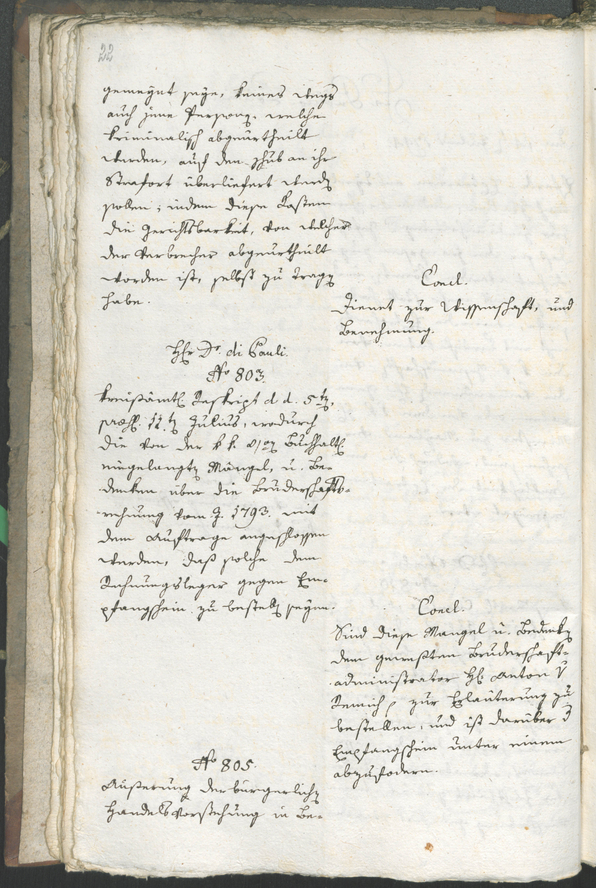 22
gemeynt seye, keines wegs
auch jene Personen welche
kriminalisch abgeurtheilt
werden, auf den Schub an ihr
Strafort überliefert werden
sollen; indem diese Kosten
die Gerichtsbarkeit, von welcher
der Verbrecher abgeurtheilt
worden ist, selbst zu tragen
habe.
Concl.
Dienet zur Wissenschaft, und
Benehmung.
Hr Dr. di Pauli.
No 803.
kreisämtl. Reskript d. d. 5ten,
11ten Julius, wodurch
die von der k. k. Buchhalt.
eingelangten Mängel, u. Be-
denken über die Bruderschafts-
rechnung vom J. 1793. mit
dem Auftrage angeschlossen
werden, daß solche dem
Rechnungsleger gegen Em-
pfangschein zu bestellen seyen.
Concl.
Sind diese Mängel u. Bedenken
dem gewesten Bruderschaft-
administrator Hr. Anton v
zur Erläuterung zu
bestellen, und ist darüber d
Empfangschein unter einem
abzufodern.
No 805.
Äußerung der bürgerlichen
Handelsvorstehung in Be-